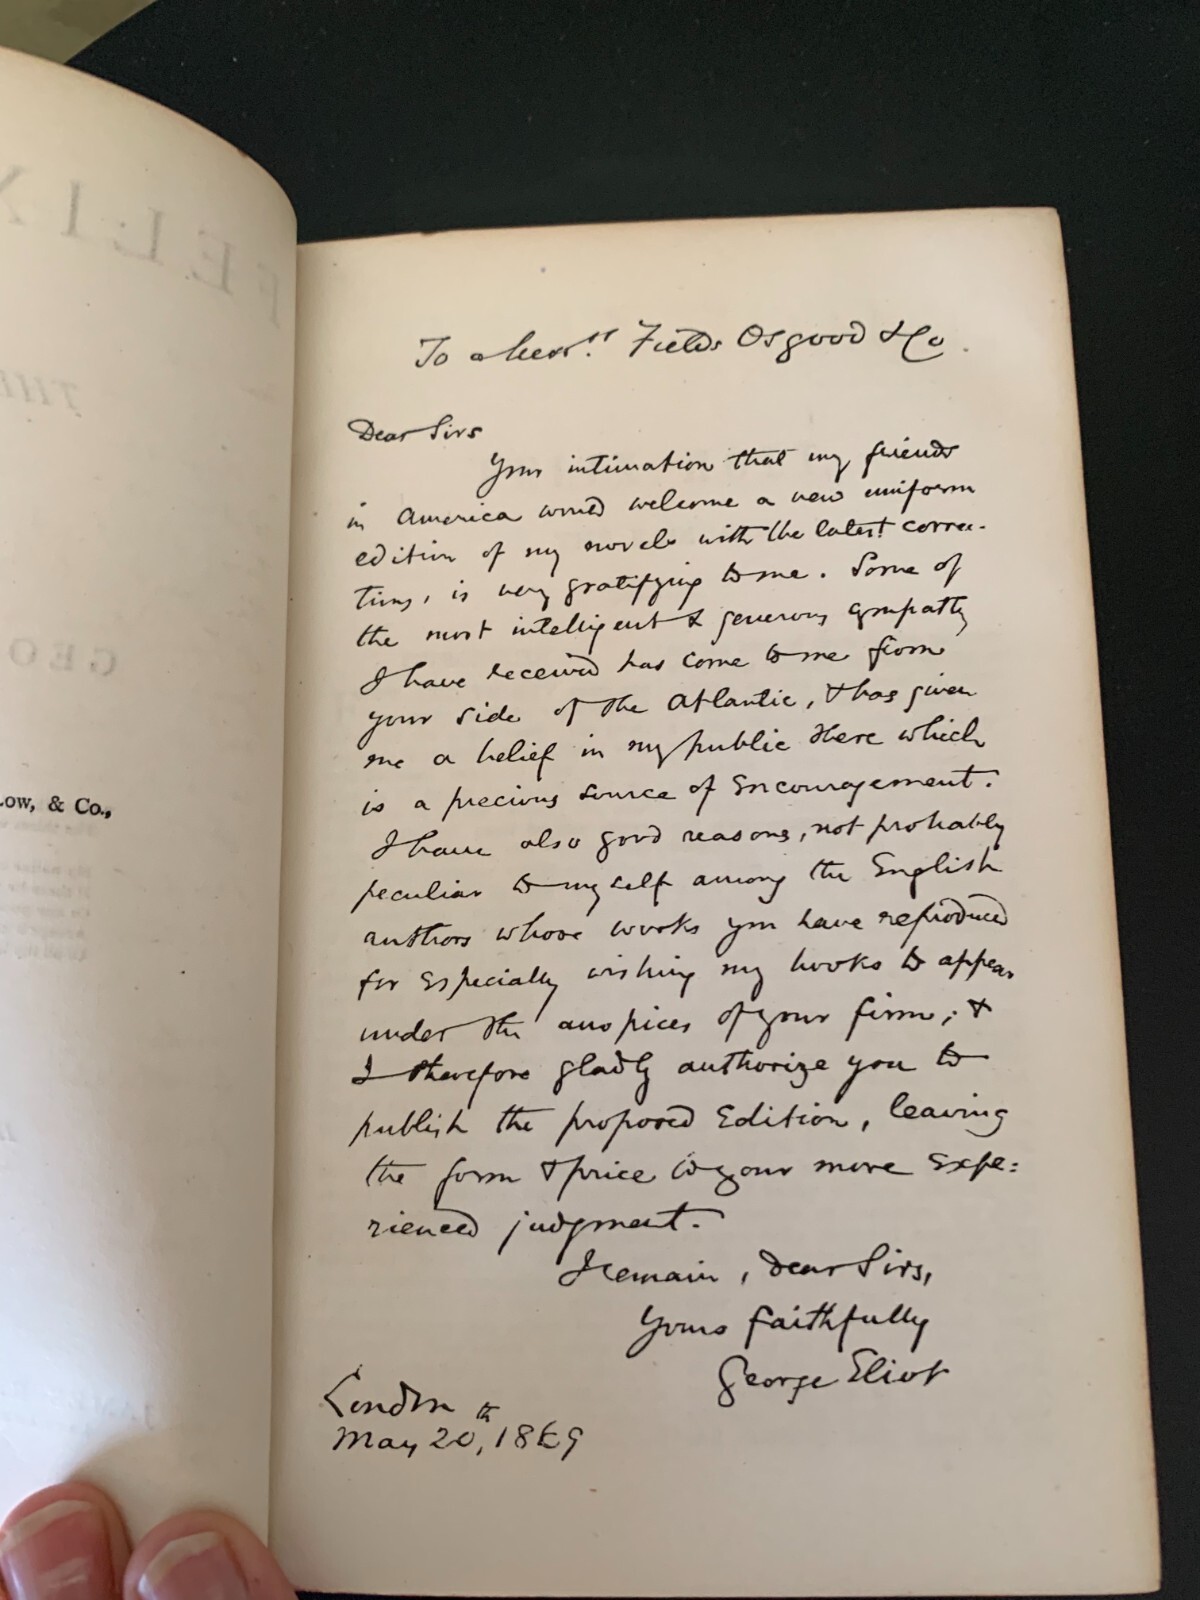 Low, & Co.,
To Messrs. Fields Osgood & Co.
Dear Sirs
Your intimation that my friends
in America would welcome a new uniform
edition of my novels with the latest correc-
tions, is very gratifying to me. Some of
the most intelligent & generous sympathy
I have received has come to me from
your side of the Atlantic, & has given
me a belief in my public there which
is a precious source of encouragement.
I have also good reasons, not probably
peculiar to myself among the English
authors whose works you have reproduced
for especially wishing my books to appear
under the auspices of your firm; &
I therefore gladly authorize you to
publish the proposed Edition, leaving
the form & price to your more expe:
rienced judgment.
I remain, Dear Sirs,
Yours faithfully
George Eliot
London
May 20th, 1869